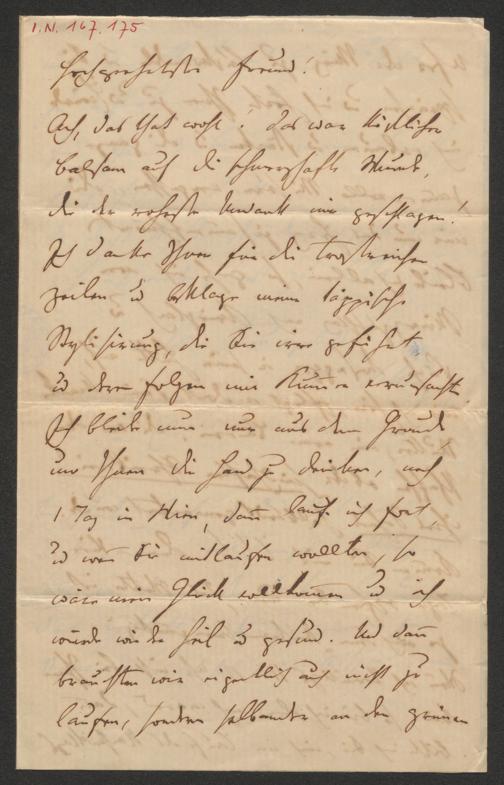 I.N. 167.175
Hochgeehrtester Freund!
Ach, das that wohl! Das war köstlicher
Balsam auf die schmerzhafte Wunde,
die der roheste Undank mir geschlagen!
Ich danke Ihnen für die trostreichen
Zeilen u beklage meine läppische
Stylisirung, die Sie irre geführt
u deren Folgen mir Kummer verursacht.
Ich bleibe nun nur aus dem Grunde
um Ihnen die Hand zu drücken, noch
1 Tag in Wien, dann laufe ich fort,
u wenn Sie mitlaufen wollten, so
wäre mein Glück vollkommen u ich
würde wieder heil u gesund. Und dann
bräuchten wir eigentlich auch nicht zu
laufen, sondern selbander an den grünen